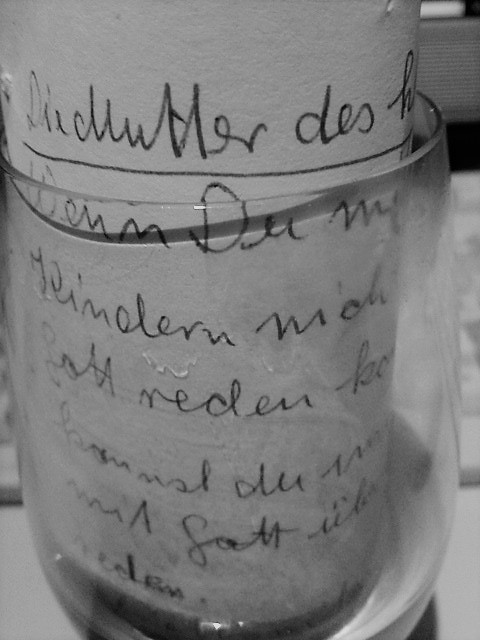 Die Mutter des h
Wenn Du m
Kindern mich
Gott reden ko
kannst du
mit Gott üb
reden.